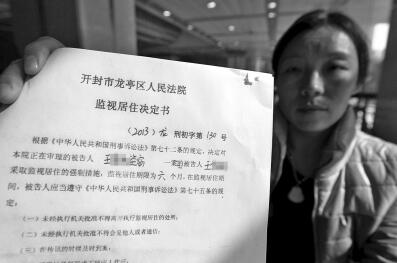 开封市龙亭区人民法院
监视居住决定书
(2013)龙 刑初字第130号
根据《中华人民共和国刑事诉讼法》第七十二条的规定，决定对
本院正在审理的被告人 王 一案的被告人王
采取监视居住的强制措施，监视居住期限为六个月，在监视居住期
间，被告人应当遵守《中华人民共和国刑事诉讼法》第七十五条的规
定：
(一)未经执行机关批准不得离开执行监视居住的处所；
(二)未经执行机关批准不得会见他人或者通信；
(三)在传讯的时候及时到案；